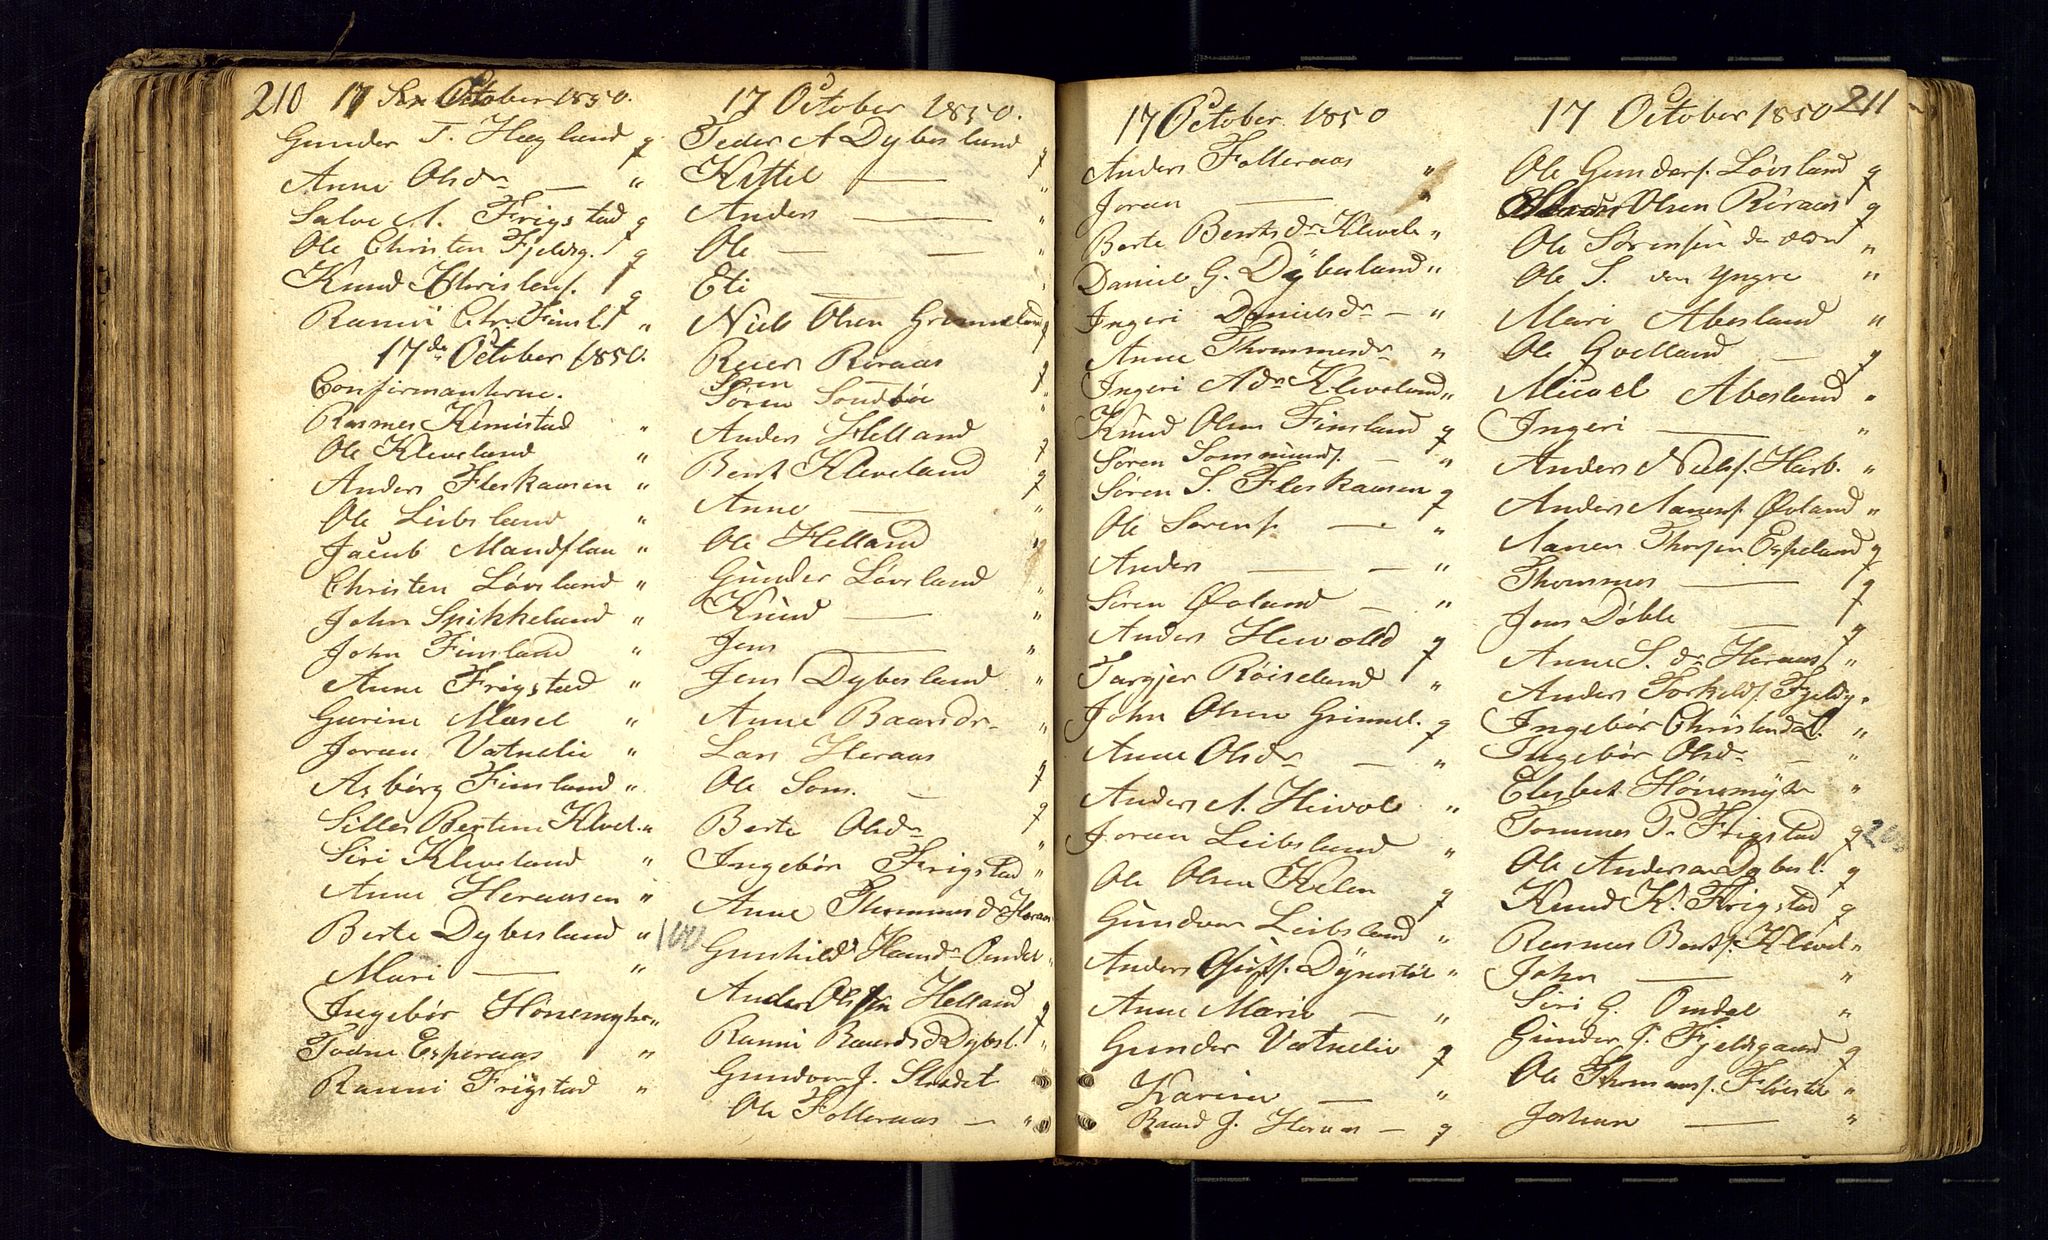 210 17 October 1850.
Gunder T. Heyland g
Anne Olsdr — "
Salve A. Frigstad g
Ole Christen Fjeldsg. g
Knud Christens. g
Ranni Chr. Finsl. "
17de October 1850.
Confirmanterne.
Rasmus Kimistad "
Ole Kleveland "
Anders Fleskaasen "
Ole Leibsland "
Jacob Mandflau "
Christen Løvsland "
John Spikkeland "
John Finsland "
Anne Frigstad "
Gurine Masel "
Joran Vatnelie "
Asbørg Finsland "
Silles Bertine Klevel. "
Siri Kleveland "
Anne Heraasen "
Berte Dybesland "
Mari — "
Ingebør Hønemyhr "
Todne Esperaas "
Ranni Frigstad "
17 October 1850.
Peder A Dybesland g
Kittel — "
Anders — "
Ole — — "
Eli — "
Niels Olsen Grimeland g
Reier Røraas g
Søren Søren Sondbøe "
Anders Helland g
Bent Kleveland g
Anne — "
Ole Helland "
Gunder Løvsland "
Knud — "
Jens — "
Jens Dybesland "
Anne Baarsdr "
Lars Heraas g
Ole Som. — g
Berte Olsdr "
Ingebør Frigstad "
Anne Thommesdr Heraas
100 Gunhild Hansdr Omdal "
Anders Olsen Helland g
Ranni Baardsd Dybesl. "
Gundvor J. Stradet
Ole Folleraas — "
17 October 1850
Anders Folleraas "
Joran — "
Berte Bentsdr Klevela "
Daniel G. Dybesland "
Ingeri Danielsdr — "
Anne Thommesdr "
Ingeri Adr Kleveland "
Knud Olsen Finsland g
Søren Sommunds. — "
Søren S. Fleskaasen g
Ole Sørens. — "
Anders — — "
Søren Øvland — "
Anders Hewolld g
Targjer Røiseland "
John Olsen Grimel. g
Anne Olsdr — "
Anders A. Heivole "
Joran Leibsland "
Ole Olsen Kelen g
Gundvor Leibsland "
Anders Dynestøl "
Anne Marie — "
Gunder Vatnelie g
Karine — "
Baard J. Heraas — g
17 October 1850 211
Ole Gunders. Løvsland g
Olsen Røraas g
Ole Sørensen den ældre "
Ole S. den yngre "
Mari Abesland "
Ole Qvelland — g
Micael Abesland "
Ingeri — "
Anders Niels. Harb. "
Anders Aanens. Øvland "
Aanen Thorsen Espeland g
Thommes — g
Jens Døble g
Anne S. dr Heraas "
Anders Torkelds. Fjeldg. "
Ingebør Christensd L. "
Ingebør Olsd — "
Elesbet Hønemyhr "
Tommes P. Frigstad g 200
Ole Andersen Dybesl. g
Knud K. Frigstad g
Rasmus Bents. Klevel "
John — "
Siri G. Omdal "
Gunder T. Fjeldsgaard g
Ole Thommess. Fløistøl "
Johan — "